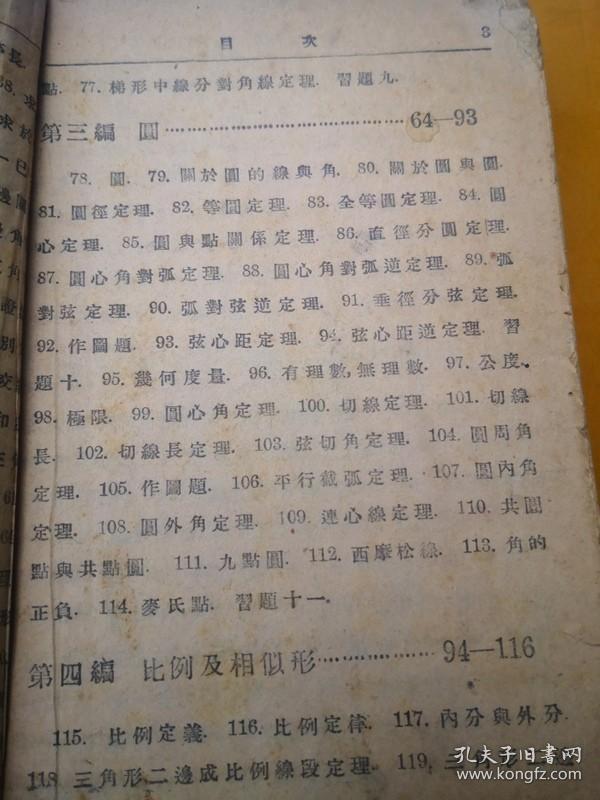 目次 3
點. 77. 梯形中線分對角線定理. 習題九.
第三編 圓 64—93
78. 圓. 79. 關於圓的線與角. 80. 關於圓與圓.
81. 圓徑定理. 82. 等圓定理. 83. 全等圓定理. 84. 圓
心定理. 85. 圓與點關係定理. 86. 直徑分圓定理.
87. 圓心角對弧定理. 88. 圓心角對弧逆定理. 89. 弧
對弦定理. 90. 弧對弦逆定理. 91. 垂徑分弦定理.
92. 作圖題. 93. 弦心距定理. 94. 弦心距逆定理. 習
題十. 95. 幾何度量. 96. 有理數, 無理數. 97. 公度.
98. 極限. 99. 圓心角定理. 100. 切線定理. 101. 切線
長. 102. 切線長定理. 103. 弦切角定理. 104. 圓周角
定理. 105. 作圖題. 106. 平行截弧定理. 107. 圓內角
定理. 108. 圓外角定理. 109. 連心線定理. 110. 共圓
點與共點圓. 111. 九點圓. 112. 西摩松線. 113. 角的
正負. 114. 麥氏點. 習題十一.
第四編 比例及相似形 94—116
115. 比例定義. 116. 比例定律. 117. 內分與外分.
118. 三角形二邊成比例線段定理. 119.
孔夫子旧書网
www.kongfz.com